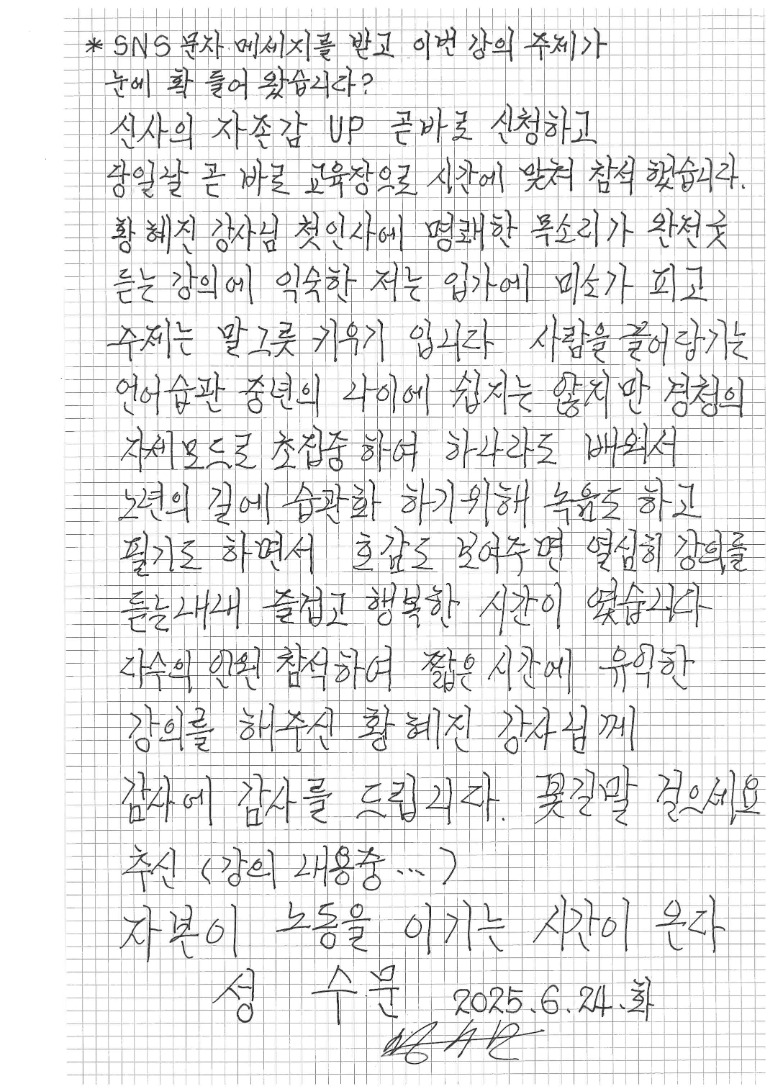 * SNS 문자 메세지를 받고 이번 강의 주제가
눈에 확 들어 왔습니다?
신사의 자존감 UP 곧바로 신청하고
당일날 곧 바로 교육장으로 시간에 맞춰 참석 했습니다.
황 혜진 강사님 첫인사에 명쾌한 목소리가 완전굿
듣는 강의에 익숙한 저는 입가에 미소가 피고
주제는 말그릇 키우기 입니다 사람을 끌어당기는
언어습관 중년의 나이에 쉽지는 않지만 경청의
자세모드로 초집중 하여 하나라도 배워서
노년의 길에 습관화 하기위해 녹음도 하고
필기도 하면서 호감도 보여주면 열심히 강의를
듣는내내 즐겁고 행복한 시간이 였습니다
다수의 인원 참석하여 짧은 시간에 유익한
강의를 해주신 황 혜진 강사님께
감사에 감사를 드립니다. 꽃길말 걸으세요
추신 (강의 내용중 ...)
자본이 노동을 이기는 시간이 온다
성 수문 2025.6.24.화